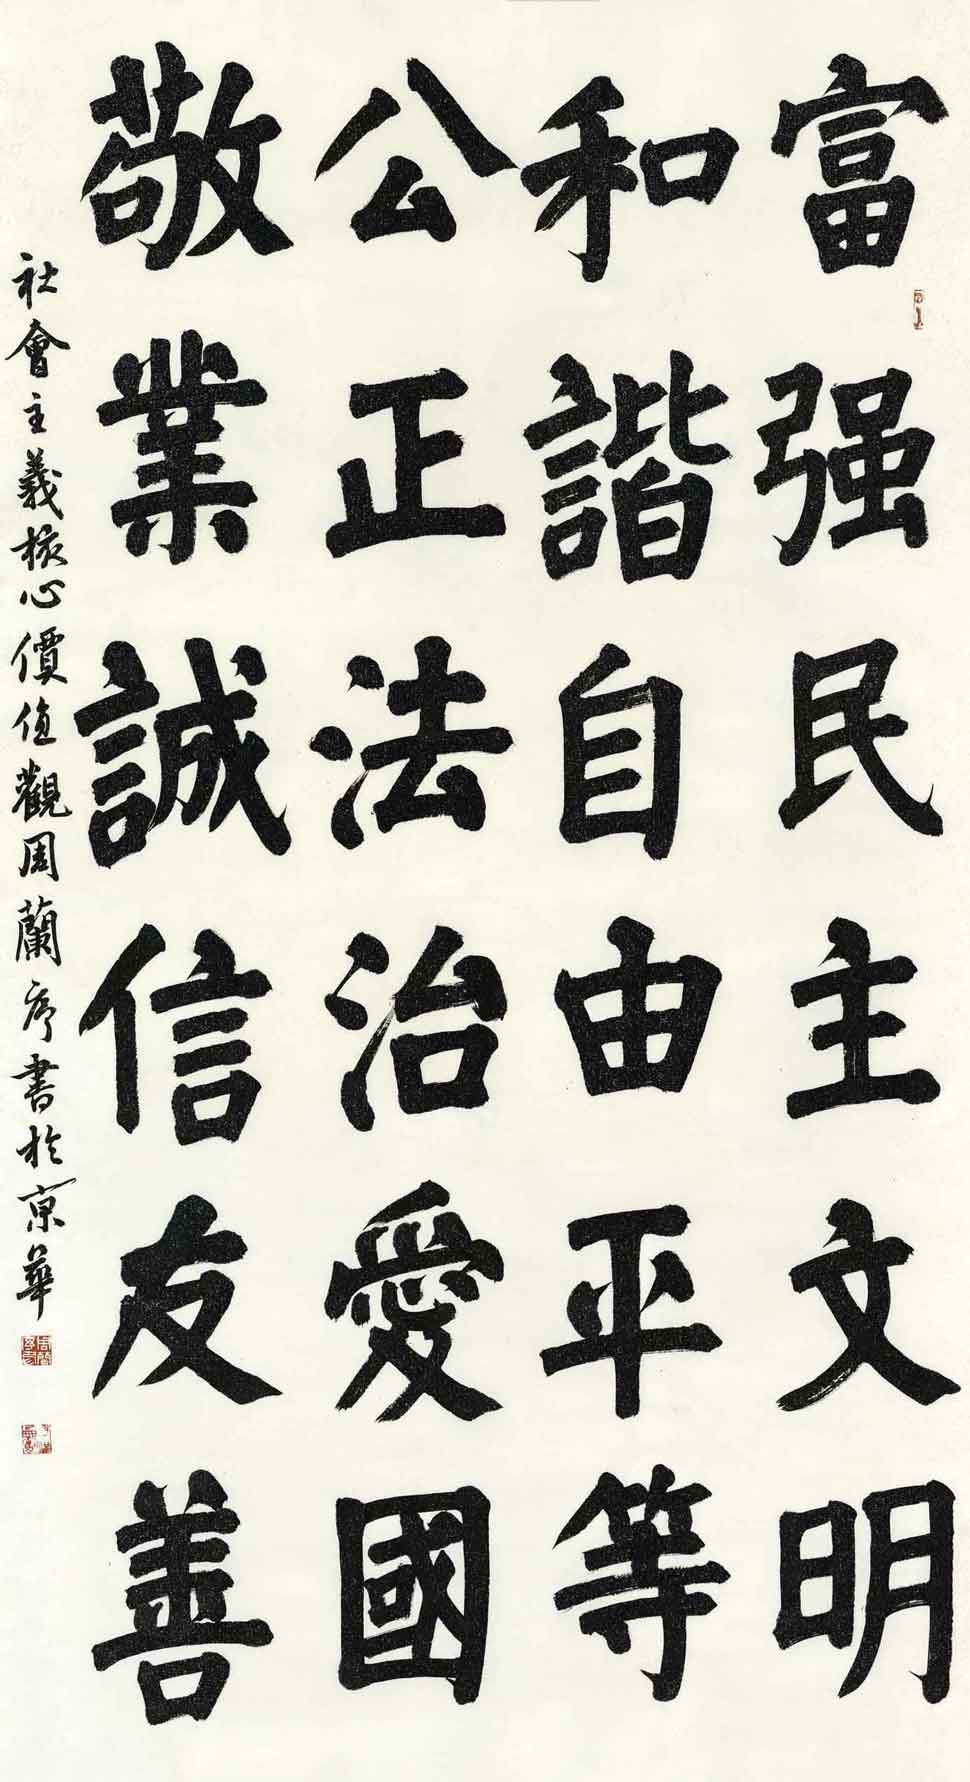 富强民主文明
和諧自由平等
公正法治愛國
敬業誠信友善
社會主義核心價值觀周蘭序書於京華